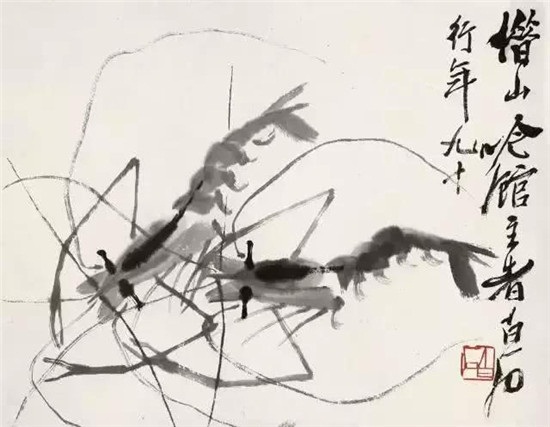 借山吟館主者白石
行年九十